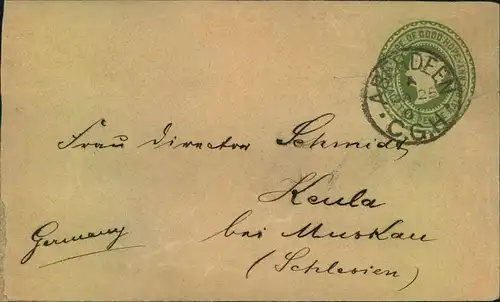 CAPE OF GOOD HOPE
ABERDEEN
C.G.H.
Frau Director Schmidt
Keula
bei Muskau
(Schlesien)
Germany